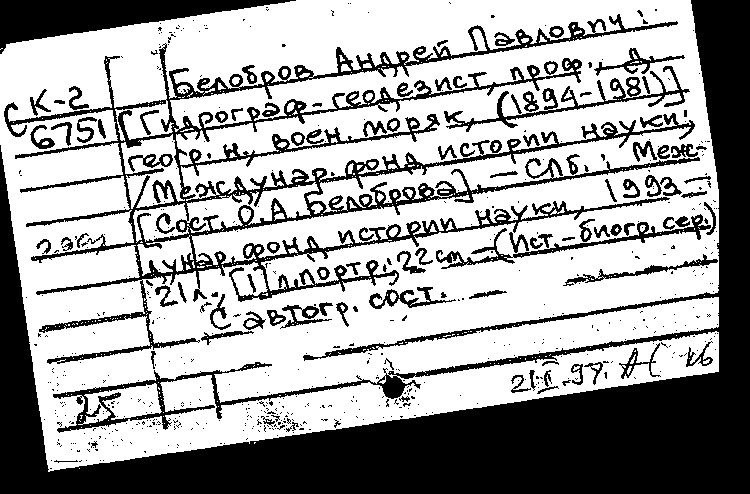 Белобров Андрей Павлович:
СК-2
6751
[Гидрограф-геодезист, проф., д.
геогр. н., воен. моряк, (1894-1981)]
/Междунар. фонд истории науки;
[Сост. О.А. Белоброва]. - СПб.: Меж-
2 экз
дунар. фонд истории науки, 1993 -
21 л., [1] л. портр.; 22 см. - (Ист.-биогр. сер.)
С автогр. сост.
25